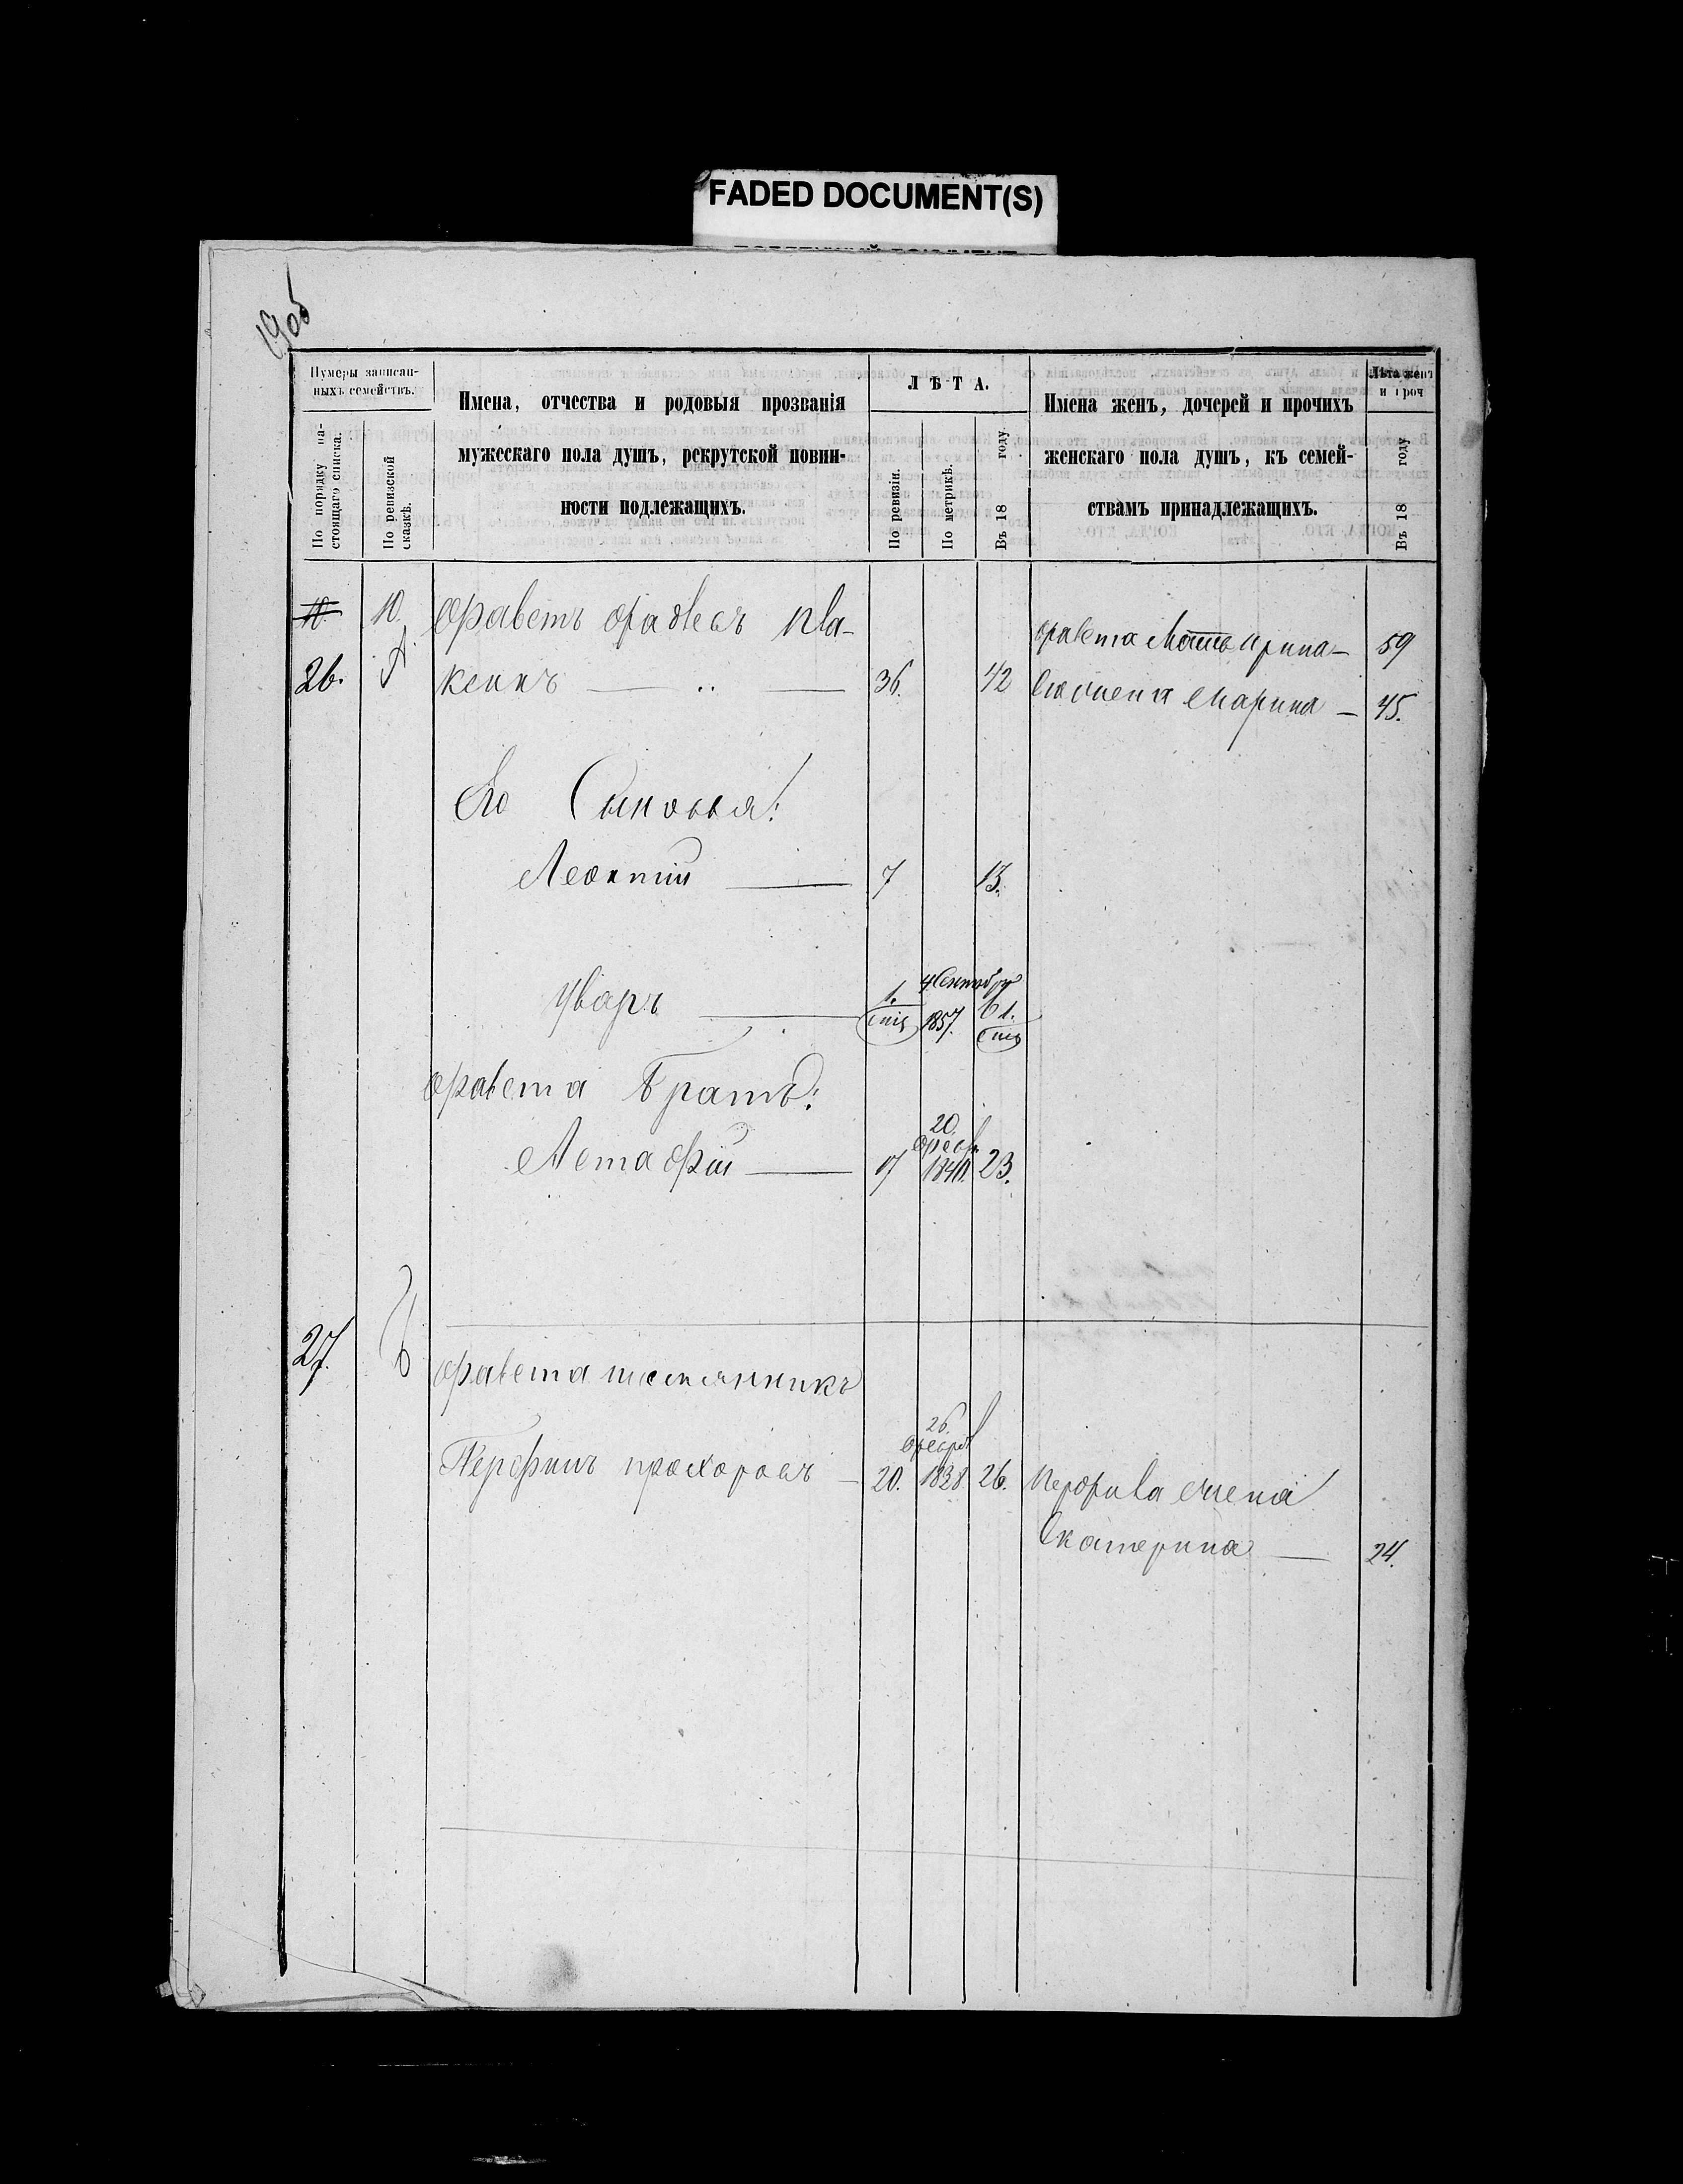 FADED DOCUMENT(S)
1905
Нумеры записан-
ныхъ семействъ.
По порядку на-
стоящаго списка.
По ревизской
сказкѣ.
Имена, отчества и родовыя прозванія
мужескаго пола душъ, рекрутской повин-
ности подлежащихъ.
ЛѢТА.
По ревизіи.
По метрикѣ.
Въ 18 году
Имена женъ, дочерей и прочихъ
женскаго пола душъ, къ семей-
ствамъ принадлежащихъ.
Лѣта женъ
и проч
Въ 18 году
10. 10.
26. А.
36. 42
мать Ирина — 59
Его жена Марина — 45.
Его Сыновья:
Леонтій — 7 13.
Уваръ — 1. 4 Сентября 1857. 6 1.
Братъ:
20
17 1840. 23.
27. Б
племянникъ
Перфилъ Прохоровъ — 20. 26 февр 1838 26.
Перфила жена
Екатерина — 24.